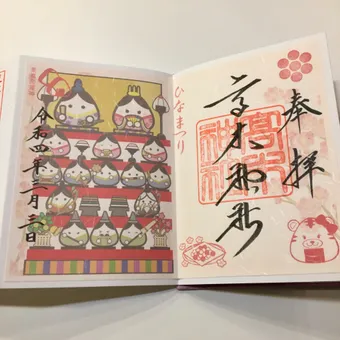 奉拝
高木神社
高木
神社
ひなまつり
令和四年三月三日